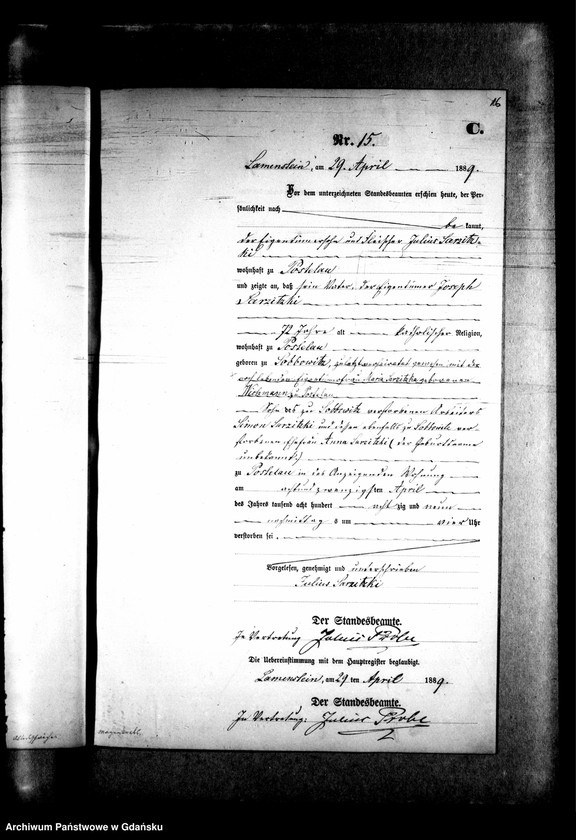 16
C.
Nr. 15.
Lamenstein, am 29. April 1889.
Vor dem unterzeichneten Standesbeamten erschien heute, der Per-
sönlichkeit nach
be kannt,
der Eigentümersohn und Fleischer Julius Sarzitz-
ki
wohnhaft zu Postelau
und zeigte an, daß sein Vater, der Eigentümer Joseph
Sarzitzki
72 Jahre alt katholischer Religion,
wohnhaft zu Postelau
geboren zu Sobbowitz, zuletzt verheiratet gewesen mit der
noch lebenden Eigentümerfrau Maria Sarzitzka geborenen
zu Postelau
Sohn des zu Sobbowitz verstorbenen Arbeiters
Simon Sarzitzki und dessen ebenfalls zu Sobbowitz ver-
storbenen Ehefrau Anna Sarzitzki (der Geburtsname
unbekannt)
zu Postelau in des Anzeigenden Wohnung
am achtundzwanzigsten April
des Jahrs tausend acht hundert acht zig und neun
nachmittag s um vier Uhr
verstorben sei.
Vorgelesen, genehmigt und unterschrieben
Julius Sarzitzki
Der Standesbeamte.
In Vertretung Julius
Die Uebereinstimmung mit dem Hauptregister beglaubigt.
Lamenstein, am 29 ten April 1889.
Der Standesbeamte.
In Vertretung: Julius
Archiwum Państwowe w Gdańsku